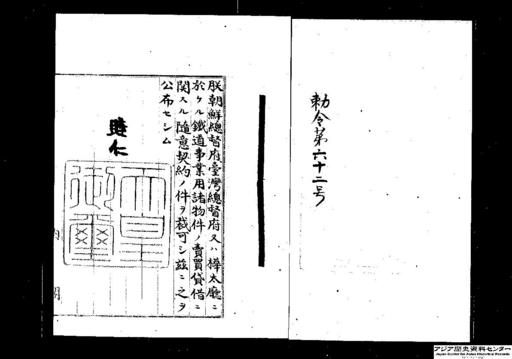 勅令第六十二号
朕朝鮮總督府臺灣總督府又ハ樺太廳ニ
於ケル鐵道事業用諸物件ノ賣買貸借ニ
関スル隨意契約ノ件ヲ裁可シ茲ニ之ヲ
公布セシム
睦仁
天皇
御璽
内閣
アジア歴史資料センター
Japan Center for Asian Historical Records